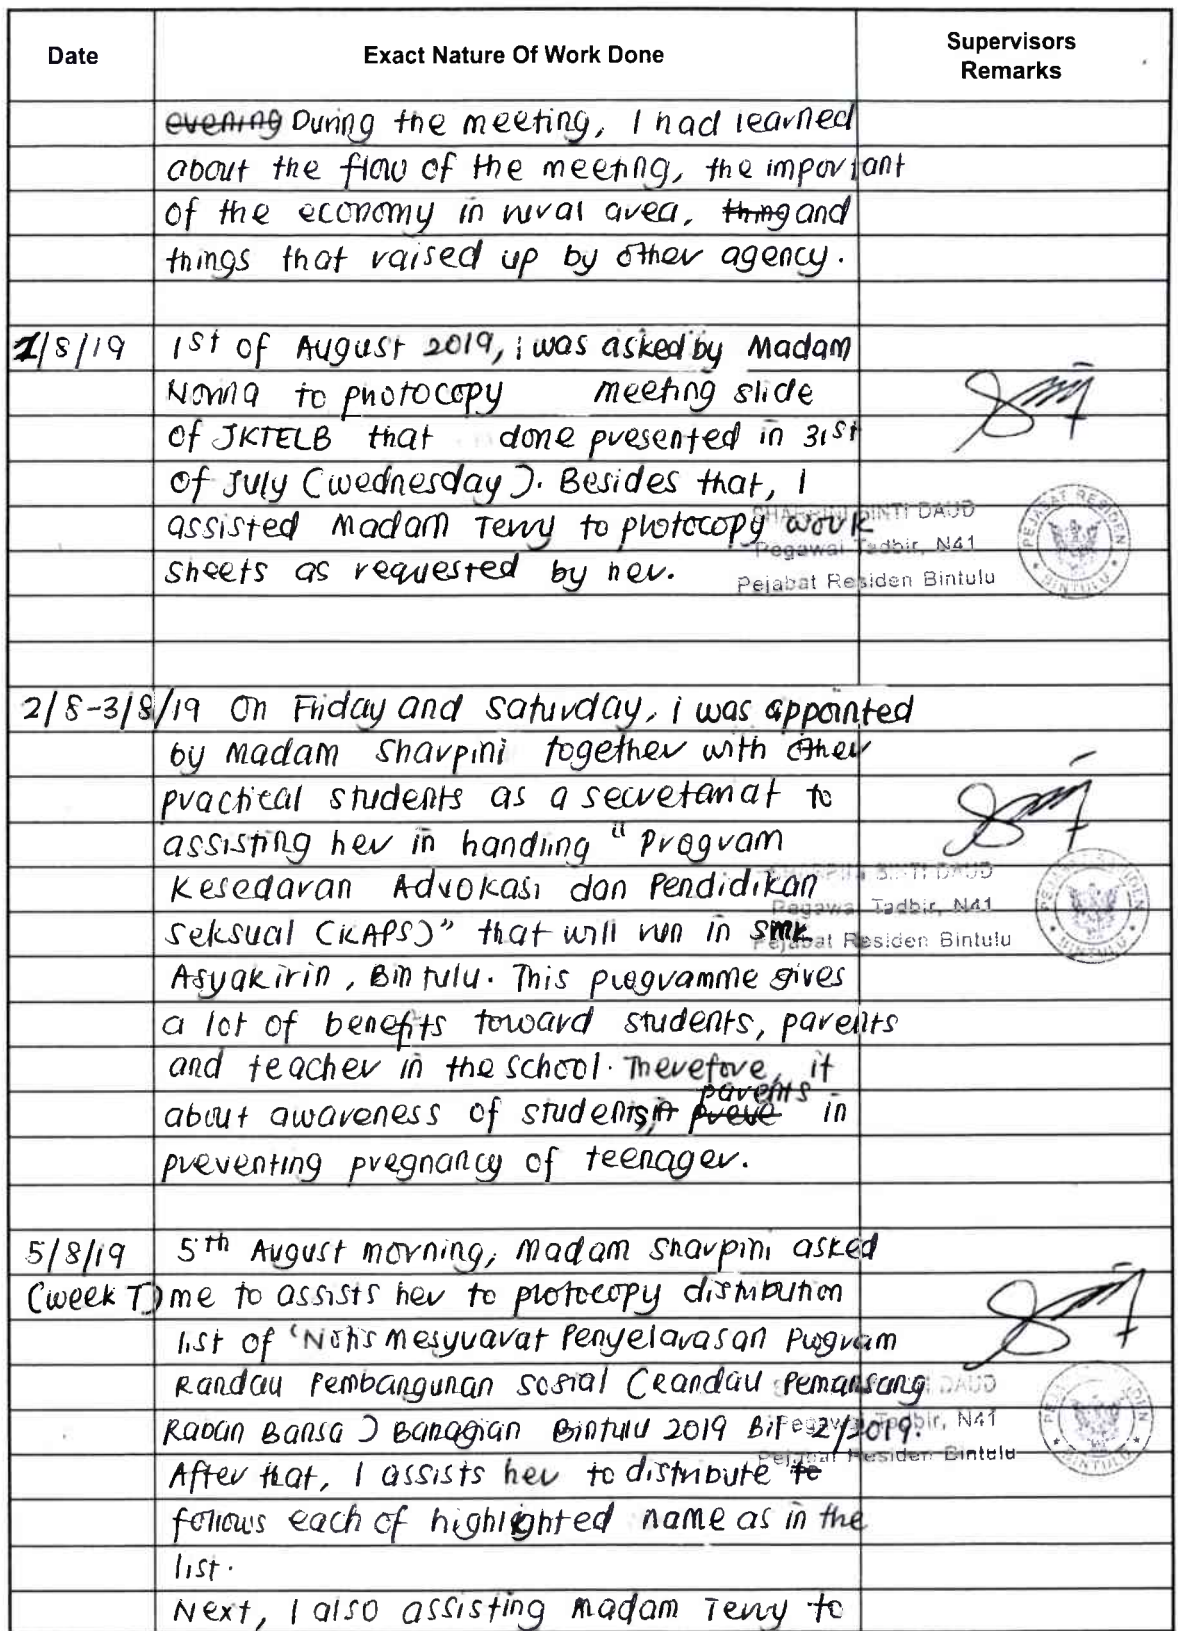 Date Exact Nature Of Work Done Supervisors Remarks
evening During the meeting, I had learned
about the flow of the meeting, the important
of the economy in rural area, thing and
things that raised up by other agency.
1/8/19 1st of August 2019, i was asked by Madam
Nonna to photocopy meeting slide
of JKTELB that done presented in 31st
of July (Wednesday). Besides that, I
assisted Madam Terry to photocopy work
sheets as requested by her.
SHARPINI BINTI DAUD
Pegawai Tadbir, N41
Pejabat Residen Bintulu
PEJABAT RESIDEN
BINTULU
2/8-3/8/19 On Friday and Saturday, i was appointed
by Madam Sharpini together with other
practical students as a secretariat to
assisting her in handling "Program
Kesedaran Advokasi dan Pendidikan
Seksual (KAPS)" that will run in SMK
Asyakirin, Bintulu. This programme gives
a lot of benefits toward students, parents
and teacher in the school. Therefore, it
about awareness of students, parents in
preventing pregnancy of teenager.
BINTI DAUD
Pegawai Tadbir, N41
Pejabat Residen Bintulu
5/8/19 5th August morning, Madam Sharpini asked
(week 7) me to assists her to photocopy distribution
list of 'Notis Mesyuarat Penyelarasan Program
Randau Pembangunan Sosial (Randau Pemansang
Raban Bansa) Banagian Bintulu 2019 Bil 2/2019.
After that, I assists her to distribute to
follows each of highlighted name as in the
list.
Next, I also assisting Madam Terry to
DAUD
Pegawai Tadbir, N41
Pejabat Residen Bintulu
BINTULU